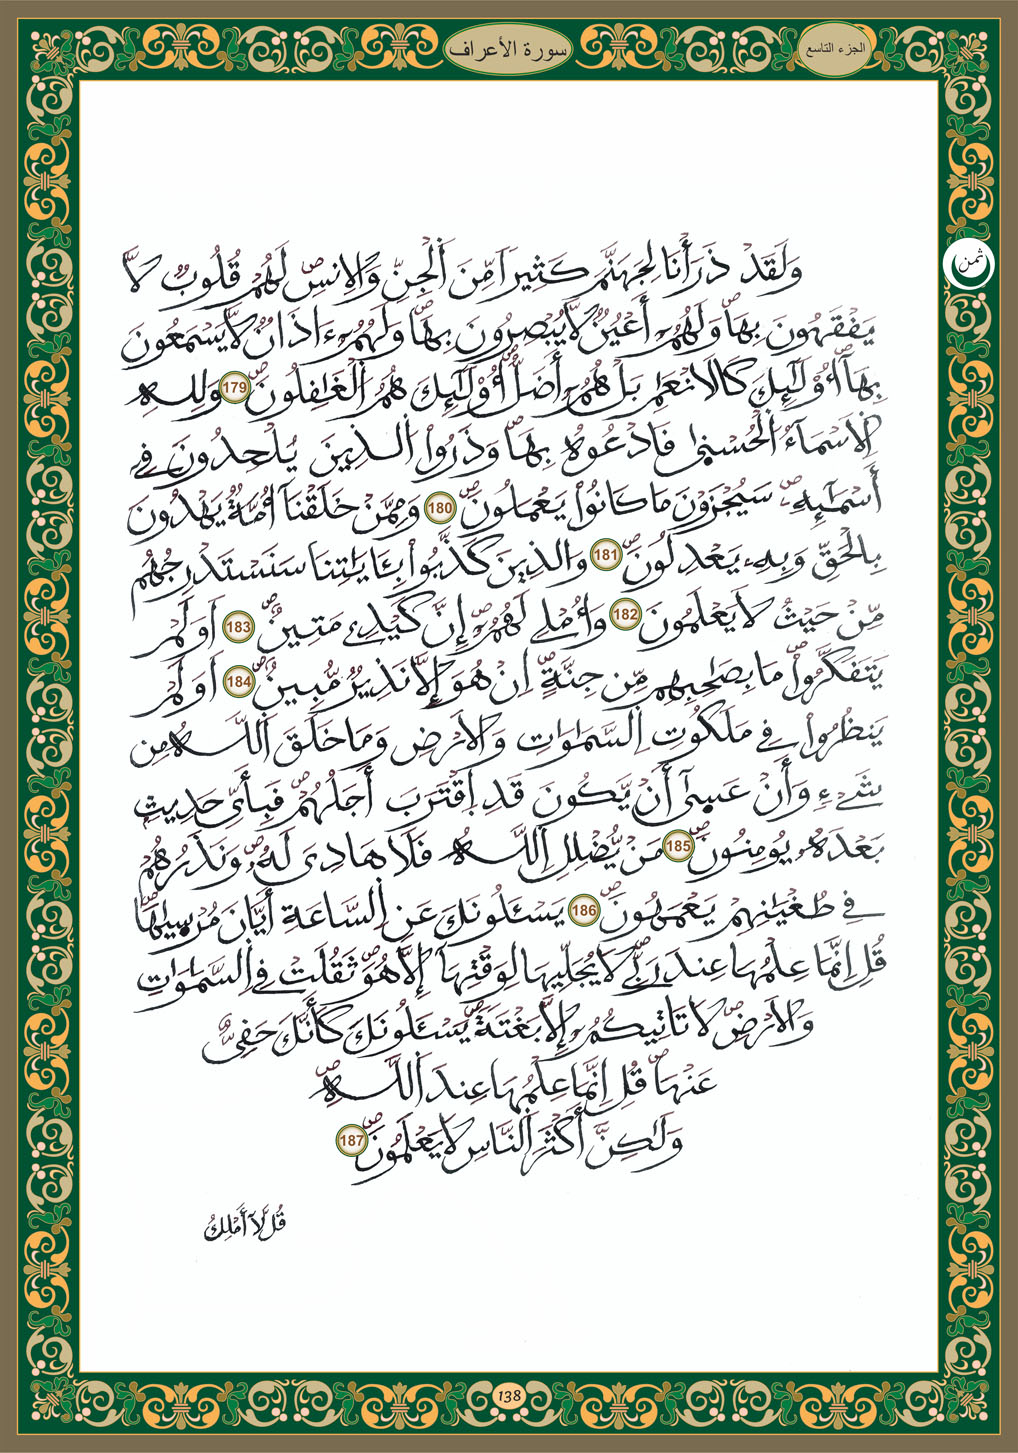 الجزء التاسع
سورة الأعراف
ثمن
وَلَقَدْ ذَرَأْنَا لِجَهَنَّمَ كَثِيراً مِّنَ اَ۬لْجِنِّ وَالِانسِۖ لَهُمْ قُلُوبٞ لَّا
يَفْقَهُونَ بِهَاۖ وَلَهُمُۥٓ أَعْيُنٞ لَّا يُبْصِرُونَ بِهَاۖ وَلَهُمُۥٓ ءَاذَانٞ لَّا يَسْمَعُونَ
بِهَآۖ أُوْلَٰٓئِكَ كَالَانْعَٰمِ بَلْ هُمُۥٓ أَضَلُّۖ أُوْلَٰٓئِكَ هُمُ اُ۬لْغَٰفِلُونَۖ 179 وَلِلهِ
اِ۬لَاسْمَآءُ اُ۬لْحُسْن۪ىٰ فَادْعُوهُ بِهَاۖ وَذَرُواْ اُ۬لذِينَ يُلْحِدُونَ فِےٓ
أَسْمَٰٓئِهِۦۖ سَيُجْزَوْنَ مَا كَانُواْ يَعْمَلُونَۖ 180 وَمِمَّنْ خَلَقْنَآ أُمَّةٞ يَهْدُونَ
بِالْحَقِّ وَبِهِۦ يَعْدِلُونَۖ 181 وَالذِينَ كَذَّبُواْ بِـَٔايَٰتِنَا سَنَسْتَدْرِجُهُم
مِّنْ حَيْثُ لَا يَعْلَمُونَۖ 182 وَأُمْلِے لَهُمُۥٓۖ إِنَّ كَيْدِے مَتِينٌۖ 183 اَوَلَمْ
يَتَفَكَّرُواْۖ مَا بِصَٰحِبِهِم مِّن جِنَّةٍۖ اِنْ هُوَ إِلَّا نَذِيرٞ مُّبِينٌۖ 184 اَوَلَمْ
يَنظُرُواْ فِے مَلَكُوتِ اِ۬لسَّمَٰوَٰتِ وَالَارْضِ وَمَا خَلَقَ اَ۬للَّهُ مِن
شَےْءٖ وَأَنْ عَس۪ىٰٓ أَنْ يَّكُونَ قَدِ اِ۪قْتَرَبَ أَجَلُهُمْۖ فَبِأَيِّ حَدِيثِۢ
بَعْدَهُۥ يُومِنُونَۖ 185 مَنْ يُّضْلِلِ اِ۬للَّهُ فَلَا هَادِيَ لَهُۥۖ وَنَذَرُهُمْ
فِے طُغْيَٰنِهِمْ يَعْمَهُونَۖ 186 يَسْـَٔلُونَكَ عَنِ اِ۬لسَّاعَةِ أَيَّانَ مُرْس۪يٰهَاۖ
قُلِ اِنَّمَا عِلْمُهَا عِندَ رَبِّےۖ لَا يُجَلِّيهَا لِوَقْتِهَآ إِلَّا هُوَۖ ثَقُلَتْ فِے اِ۬لسَّمَٰوَٰتِ
وَالَارْضِۖ لَا تَاتِيكُمُۥٓ إِلَّا بَغْتَةٗۖ يَسْـَٔلُونَكَ كَأَنَّكَ حَفِيٌّ
عَنْهَاۖ قُلِ اِنَّمَا عِلْمُهَا عِندَ اَ۬للَّهِۖ
وَلَٰكِنَّ أَكْثَرَ اَ۬لنَّاسِ لَا يَعْلَمُونَۖ 187
قُل لَّآ أَمْلِكُ
138